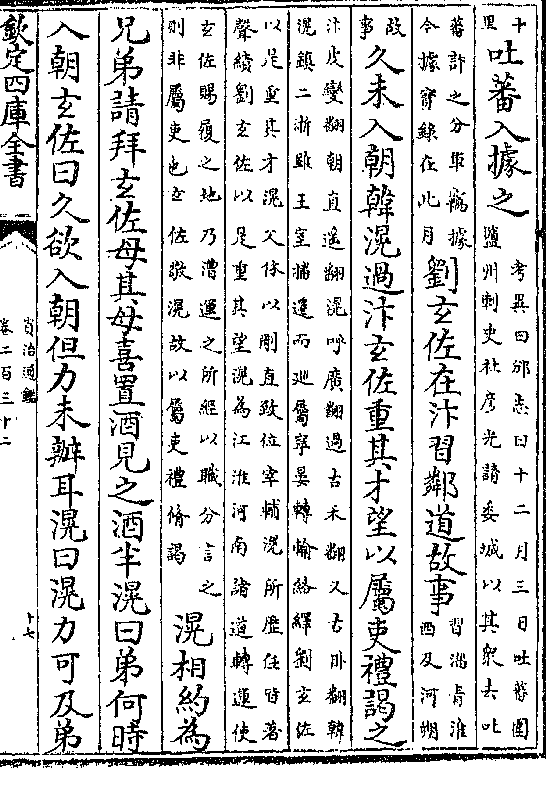 十
里
吐蕃入據之
考異曰邠志曰十二月三日吐蕃圍
鹽州刺史杜彥光請委城以其衆去吐
蕃許之分軍竊據
今據實錄在此月
劉玄佐在汴習鄰道故事
習淄青淮
西及河朔
故
事
久未入朝韓滉過汴玄佐重其才望以屬吏禮謁之
汴皮變翻朝直遥翻滉呼廣翻過古禾翻又古卧翻韓
滉鎮二浙雖王室播遷而巡屬寧晏轉輸絡繹劉玄佐
以是重其才滉父休以剛直致位宰輔滉所歷任皆著
聲績劉玄佐以是重其望滉為江淮河南諸道轉運使
玄佐賜履之地乃漕運之所經以職分言之
則非屬吏也玄佐敬滉故以屬吏禮脩謁
滉相約為
兄弟請拜玄佐母其母喜置酒見之酒半滉曰弟何時
入朝玄佐曰久欲入朝但力未辦耳滉曰滉力可及弟
欽定四庫全書
資治通鑑
卷二百三十二
十七